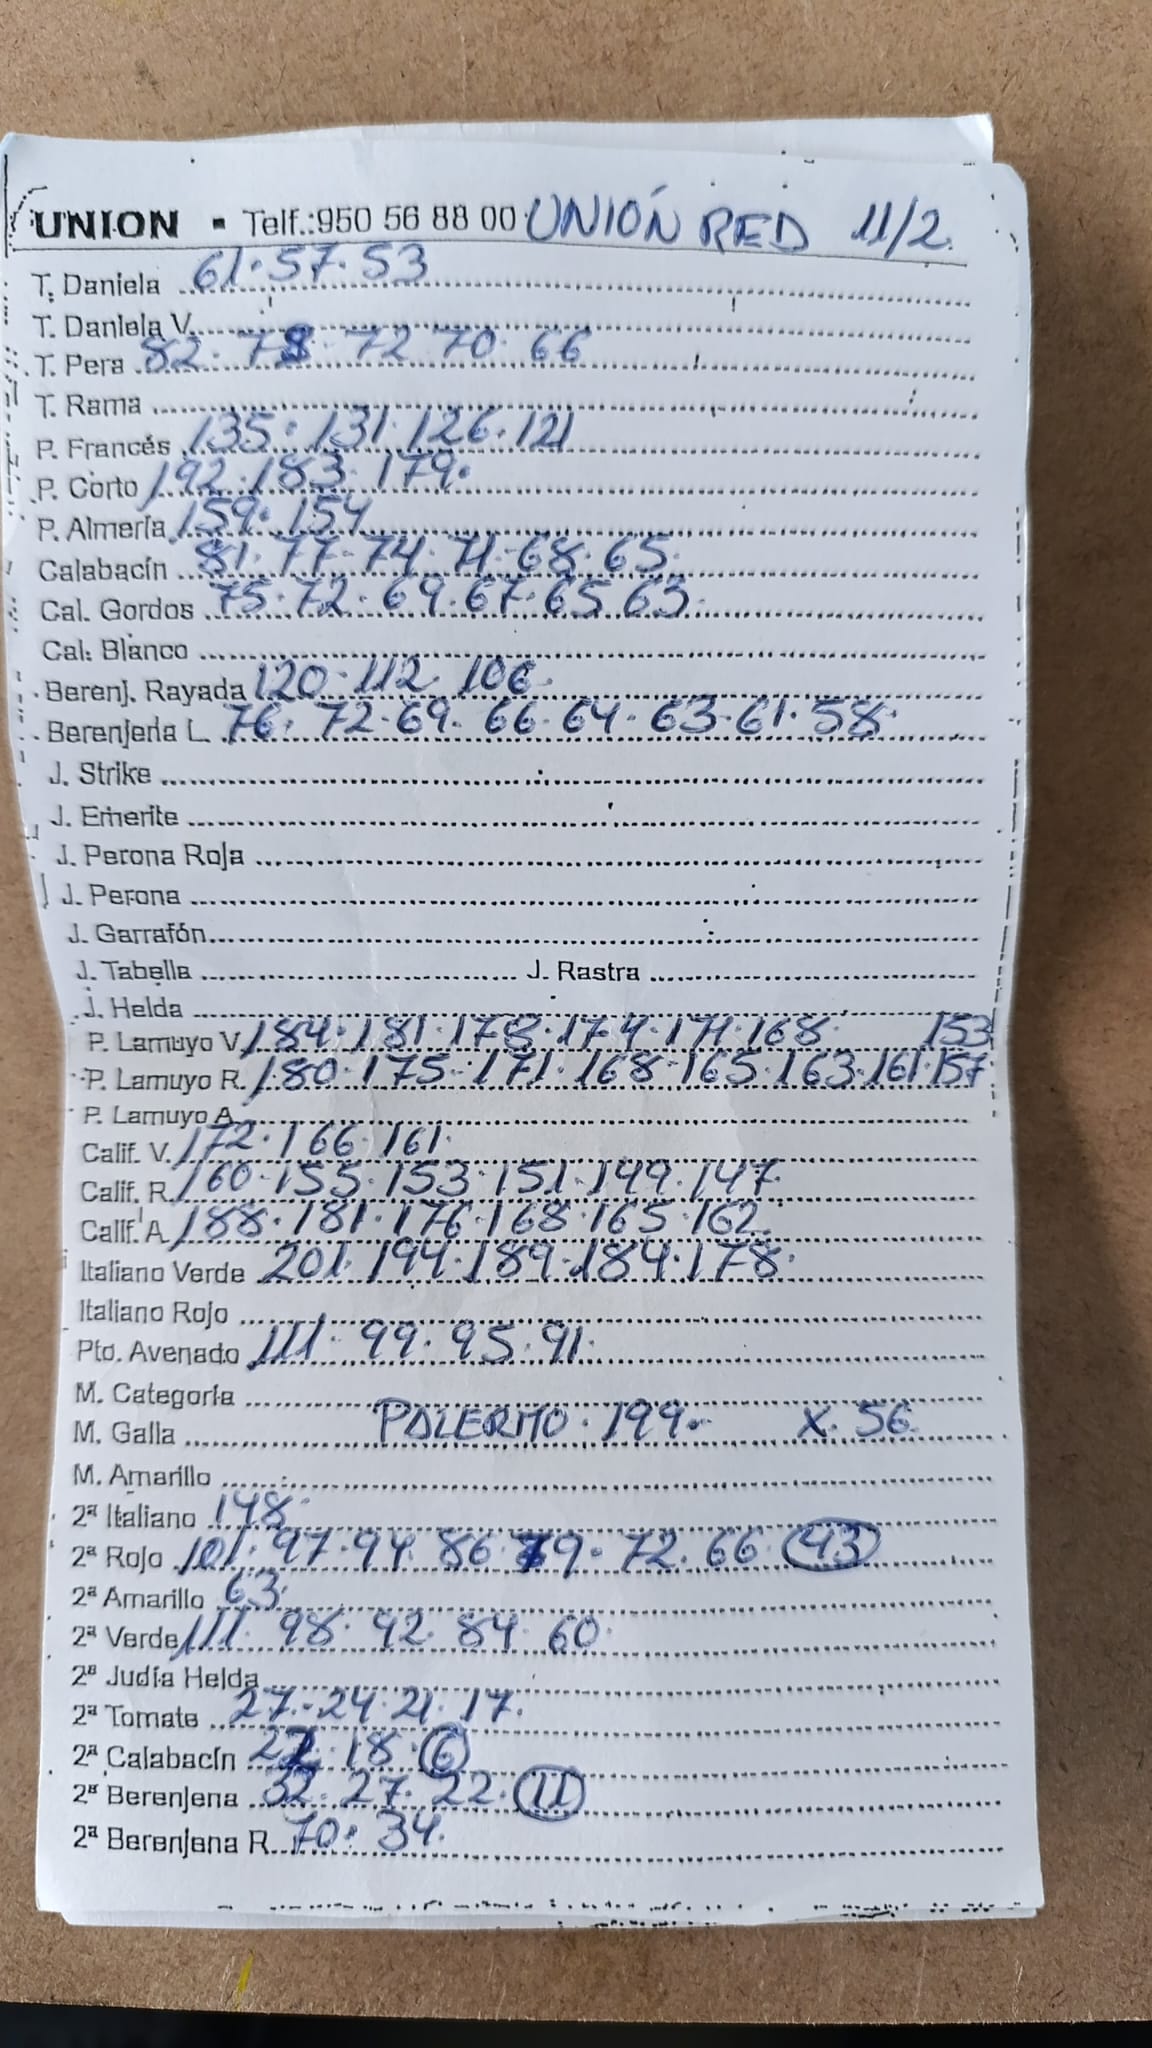 UNION - Telf.:950 56 88 00 UNIÓN RED 11/2.
T. Daniela 61·57·53
T. Daniela V.
T. Pera 82·78·72 70·66
T. Rama
P. Francés 135·131·126·121
P. Corto 192·183·179·
P. Almería 159·154
Calabacín 81·77·74·71·68·65·
Cal. Gordos 75·72·69·67·65 63·
Cal. Blanco
Berenj. Rayada 120·112·106·
Berenjena L. 76·72·69·66·64·63·61·58·
J. Strike
J. Emerite
J. Perona Roja
J. Perona
J. Garrafón
J. Tabella J. Rastra
J. Helda
P. Lamuyo V. 184·181·178·174·171·168· 153
P. Lamuyo R. 180·175·171·168·165·163·161·157
P. Lamuyo A.
Calif. V. 172·166·161·
Calif. R. 160·155·153·151·149·147·
Calif. A. 188·181·176·168·165·162·
Italiano Verde 201·194·189·184·178·
Italiano Rojo
Pto. Avenado 111·99·95·91·
M. Categoría
M. Galla PALERMO·199· X·56·
M. Amarillo
2ª Italiano 148·
2ª Rojo 101·97·94·86·79·72·66 43
2ª Amarillo 63·
2ª Verde 111·98·92·84·60·
2ª Judía Helda
2ª Tomate 27·24·21·17·
2ª Calabacín 18·6
2ª Berenjena 32·27·22·11
2ª Berenjena R. 70·34·